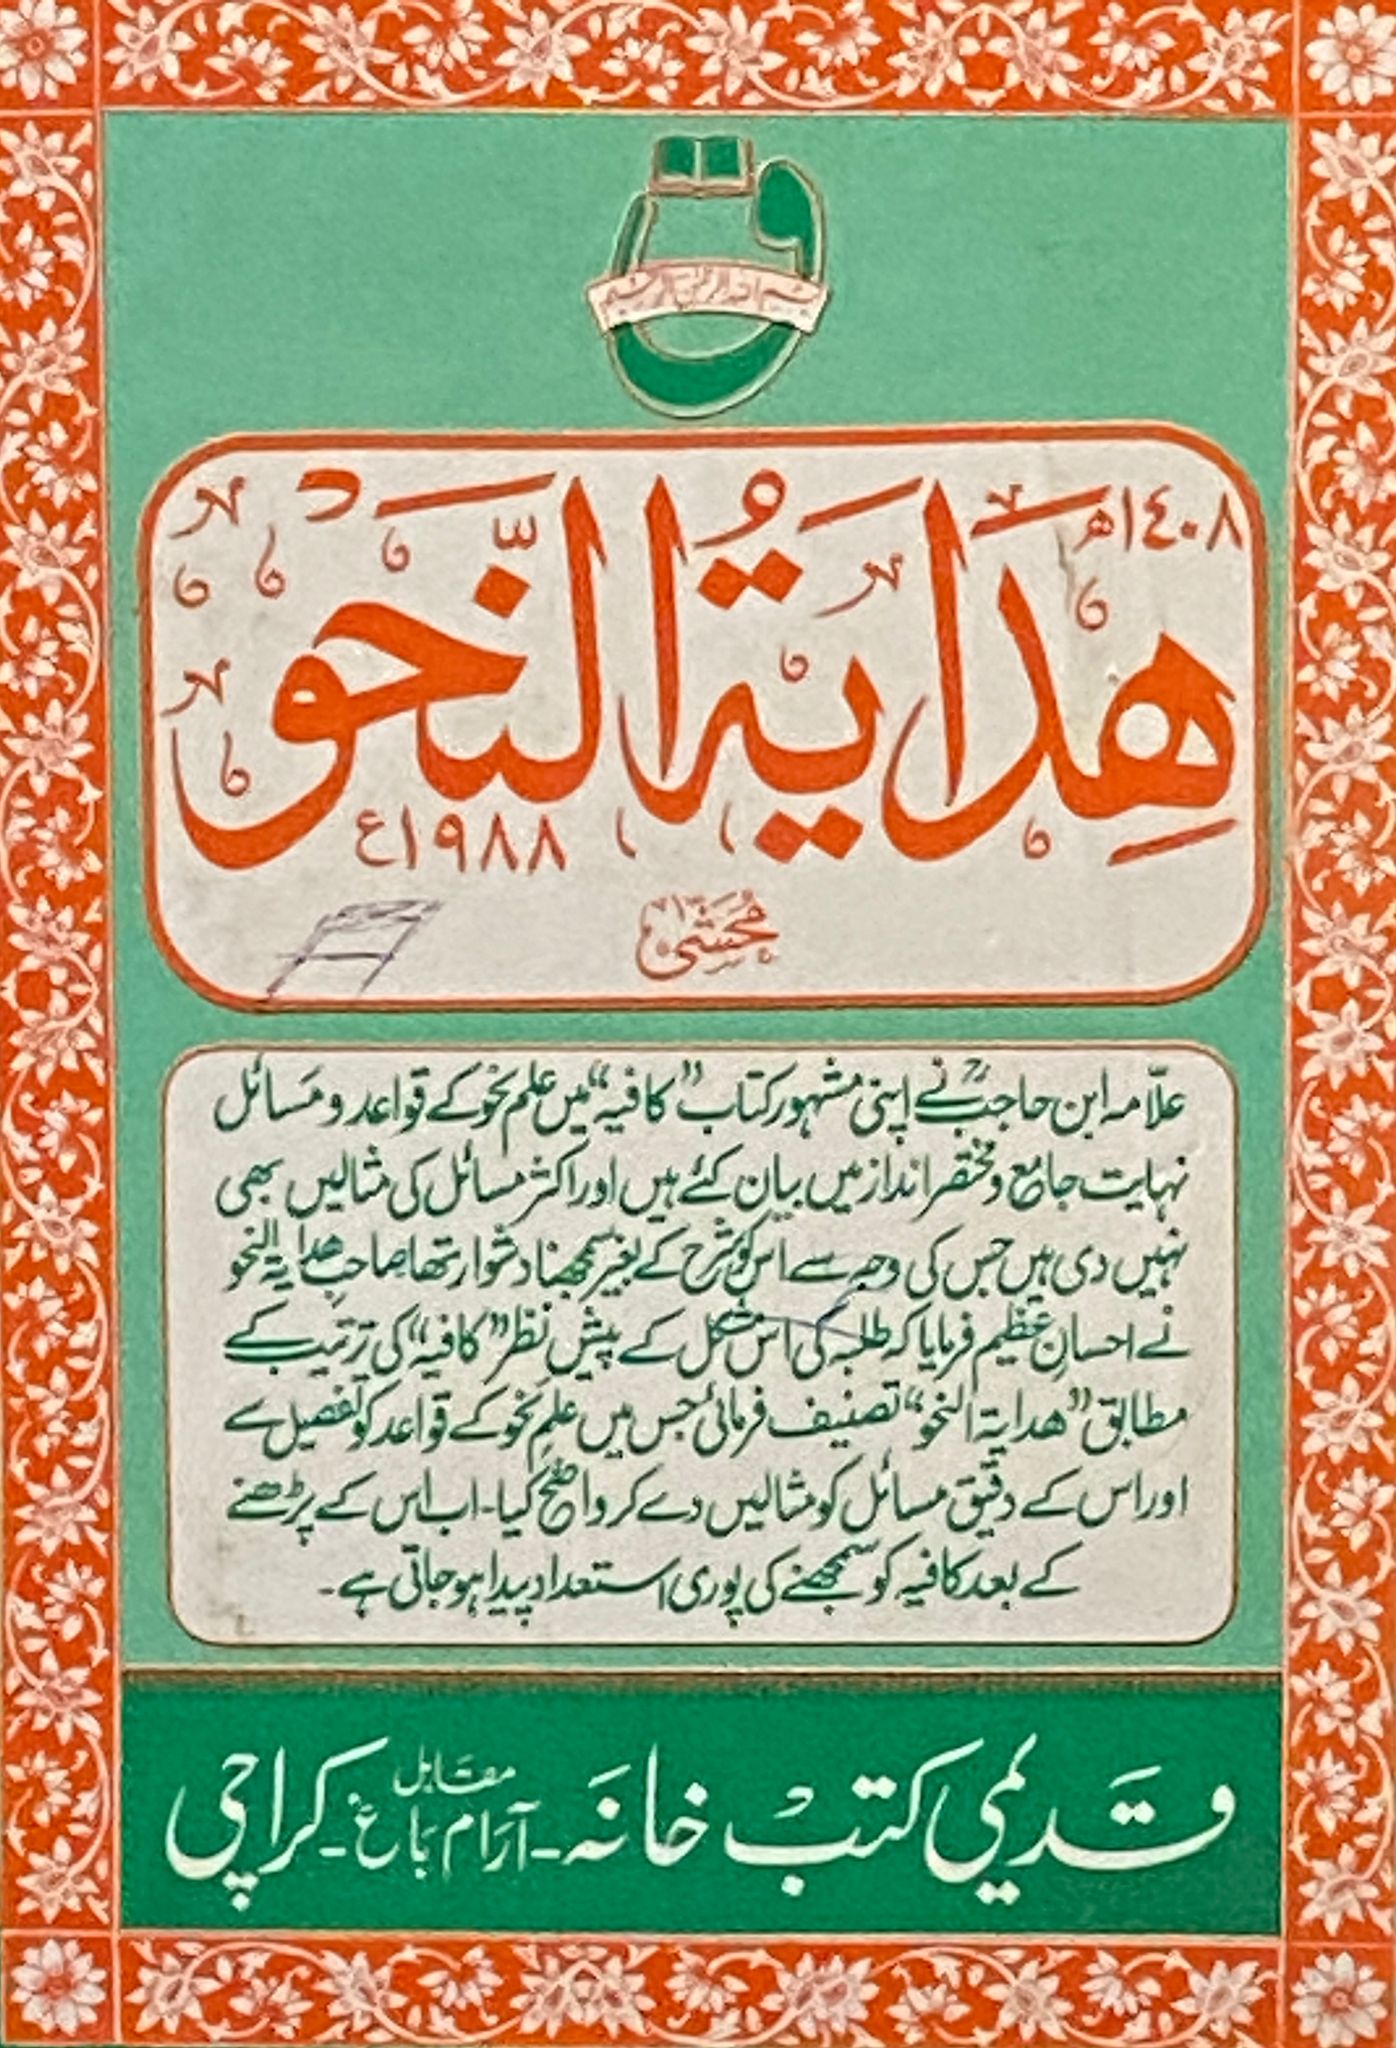 بسم اللہ الرحمن الرحیم
١٤٠٨ھ
هِدَایَةُ النَّحْو
١٩٨٨ع
مُحَشّٰی
علّامہ ابن حاجبؒ نے اپنی مشہور کتاب ”کافیہ“ میں علم نحو کے قواعد و مسائل
نہایت جامع و مختصر انداز میں بیان کئے ہیں اور اکثر مسائل کی مثالیں بھی
نہیں دی ہیں جس کی وجہ سے اس کو شرح کے بغیر سمجھنا دشوار تھا صاحبِ هدایة النحو
نے احسانِ عظیم فرمایا کہ طلبہ کی اس مشکل کے پیش نظر ”کافیہ“ کی ترتیب کے
مطابق ”هدایة النحو“ تصنیف فرمائی جس میں علمِ نحو کے قواعد کو تفصیل سے
اور اس کے دقیق مسائل کو مثالیں دے کر واضح کیا۔ اب اس کے پڑھنے
کے بعد کافیہ کو سمجھنے کی پوری استعداد پیدا ہو جاتی ہے۔
قدیمی کتب خانہ ۔ مقابل آرام باغ ۔ کراچی